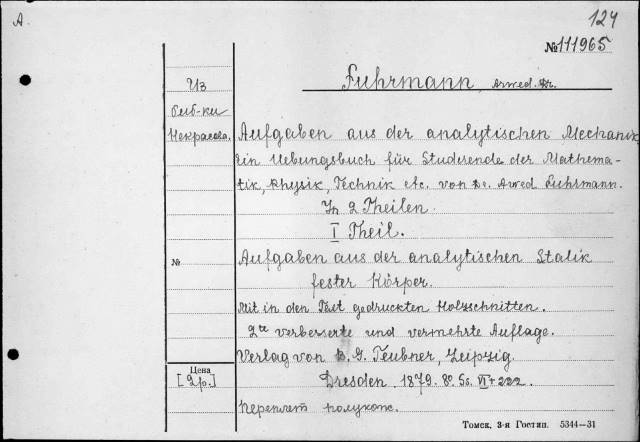 A.
124
№111965
Fuhrmann, Arwed. Dr.
Из
биб-ки
Некрасова.
Aufgaben aus der analytischen Mechanik
Ein Uebungsbuch für Studierende der Mathema-
tik, Physik, Technik etc. von Dr. Arwed Fuhrmann.
In 2 Theilen.
I Theil.
№
Aufgaben aus der analytischen Statik
fester Körper.
Mit in den Text gedruckten Holzschnitten.
2te verbesserte und vermehrte Auflage.
Verlag von B. G. Teubner, Leipzig.
Цена
[2р.]
Dresden. 1879. 8º. Ss. VI+222.
Переплет полукож.
Томск, 3-я Гостип. 5344—31